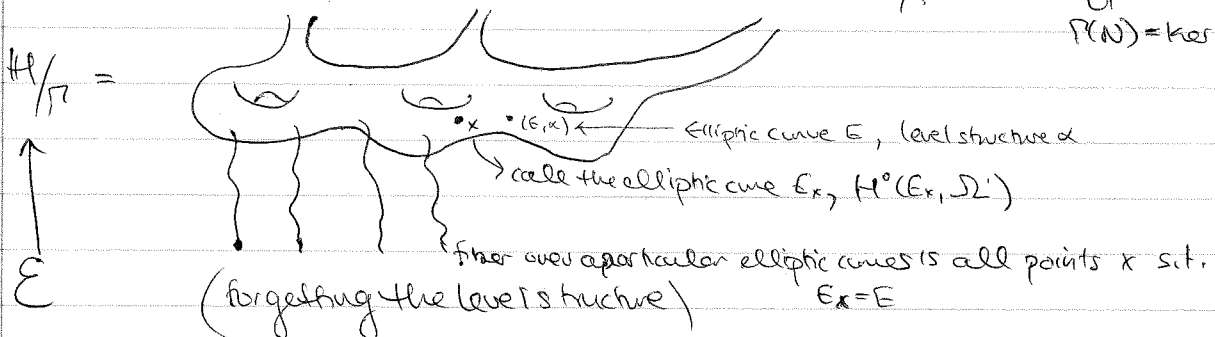 Γ(N) = ker
H/Γ =
•x •(E,α) ← Elliptic curve E, level structure α
call the elliptic curve Ex, H°(Ex, Ω¹)
fiber over a particular elliptic curves is all points x s.t.
Ex = E
ℰ
(forgetting the level structure)